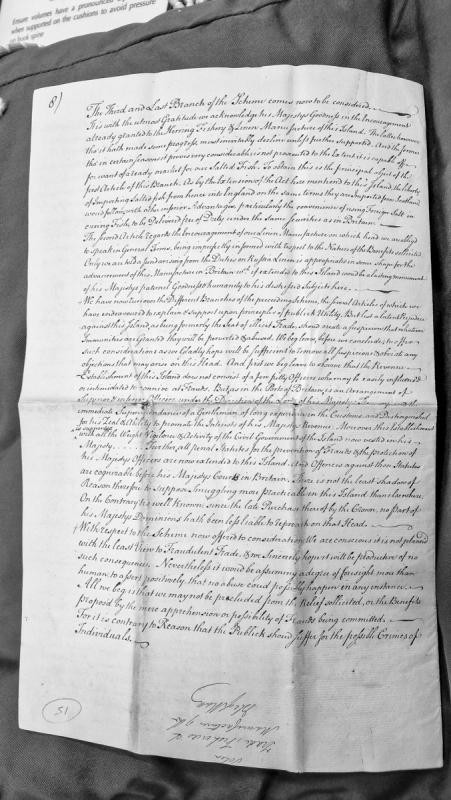 Ensure volumes have a pronounced
when supported on the cushions to avoid pressure
on book spine
8)
The Third and Last Branch of the Scheme comes now to be considered.
It is with the utmost Gratitude we acknowledge his Majestys Goodness in the Encouragement
already granted to the Herring Fishery & Linen Manufacture of this Island. The latter however
tho it hath made some progress, must inevitably decline unless further supported. And the former
tho in certain seasons it proves very considerable is not prosecuted to the Extent it is capable off
for want of a ready market for our Salted Fish. To obtain this is the principal object of the
first Article of this Branch. As by the Extension of the Act here mentiond to this Island, the liberty
of Importing Salted fish from hence into England on the same terms they are Imported from Scotland
woud follow, with other inferior Advantages, particularly the convenience of using Foreign Salt in
curing Fish, to be Deliverd free of Duty, under the same Securities as in Britain.
The Second Article regards the Encouragement of our Linen Manufacture, on which head we are obliged
to speak in General Terms, being imperfectly informed with respect to the Nature of the Benefits sollicited.
Only we are told a fund arising from the Duties on Russia Linen is appropriated in some shape for the
advancement of this Manufacture in Britain wch. if extended to this Island woud be a lasting monument
of his Majestys paternal Goodness & humanity to his distressed Subjects here.
We have now run over the Different Branches of the preceeding Scheme, the several Articles of which we
have endeavoured to explain & support upon principles of publick Utility. But lest a latent Prejudice
against this Island, as being formerly the Seat of illicit Trade, shoud create a suspicion that whatever
Immunities are granted they will be perverted & abused. We beg leave, before we conclude, to offer
such considerations as we gladly hope will be sufficient to remove all Suspicions & obviate any
objections that may arise on this Head. And first we beg leave to observe that the Revenue
Establishment of this Island does not consist of a few petty Officers who may be easily influenced
or intimidated to connive at Frauds. But as in the Ports of Britain, is an arrangement of
Superior & inferior Officers, under the Direction of the Lords of his Majestys Treasury and the
immediate Superintendance of a Gentleman of long experience in the Customs, and Distinguished
for his Zeal & Ability to promote the Interests of his Majestys Revenue. Moreover this Establishment
is supported
with all the Weight Vigilance & Activity of the Civil Government of the Island now vested in his
Majesty. Further, all penal Statutes for the prevention of Frauds & the protection of
his Majestys Officers are now extended to this Island. And Offences against those Statutes
are cognizable before his Majestys Courts in Britain. There is not the least shadow of
Reason therefore to suppose Smuggling more practicable in this Island than elsewhere.
On the Contrary it is well known since the late Purchase thereof by the Crown, no part of
his Majestys Dominions hath been less liable to reproach on that Head.
With respect to the Scheme now offered to consideration We are conscious it is not plannd
with the least View to Fraudulent Trade, & we Sincerely hope it will be productive of no
such consequence. Nevertheless it would be assuming a degree of foresight more than
human to assert positively, that no abuse coud possibly happen in any instance.
All we beg is that we may not be precluded from the Relief sollicited, or the Benefits
proposd by the mere apprehension or possibility of Frauds being committed.
For it is contrary to Reason that the Publick shoud suffer for the possible Crimes of
Individuals.
15
Trade, Fisheries &
Manufactures of the
Isle of Man